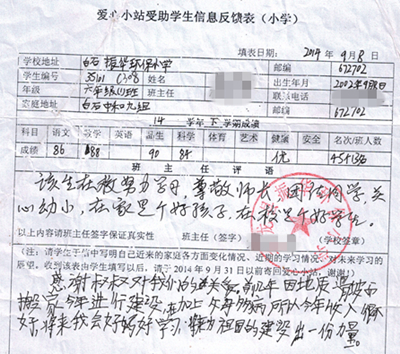 爱心小站受助学生信息反馈表（小学）
填表日期： 2014 年 9 月 8 日
学校地址 白石 环保小学 邮编 672702
学生编号 35101 C308 姓名 出生年月
年级 六年级(1)班 班主任 联系电话
家庭地址 白石中和九组 邮编 672702
14 学年 下 学期成绩
科目 语文 数学 英语 品生 科学 体育 艺术 健康 安全 名次/班人数
成绩 86 88 90 84 优
班 主 任 评 语
该生在校努力学习，尊敬师长，团结同学，关
心幼小，在家是个好孩子，在校是个好学生。
以上内容请班主任签字保证真实性 班主任（签字） （学校签章）
（注：请学生于信中写明自己近来的家庭各方面变化情况、近期的学习情况、对未来学习的
展望，收到该表由学生填写以后，请于 2014 年 9 月 31 日以前寄回爱心小站，谢谢！）
感谢叔叔对我们的关爱，前几年因地质
搬家，今年进行建设，再加上父母多病，所以今年收入
好，将来我会好好学习，为祖国的建设出一份力量。